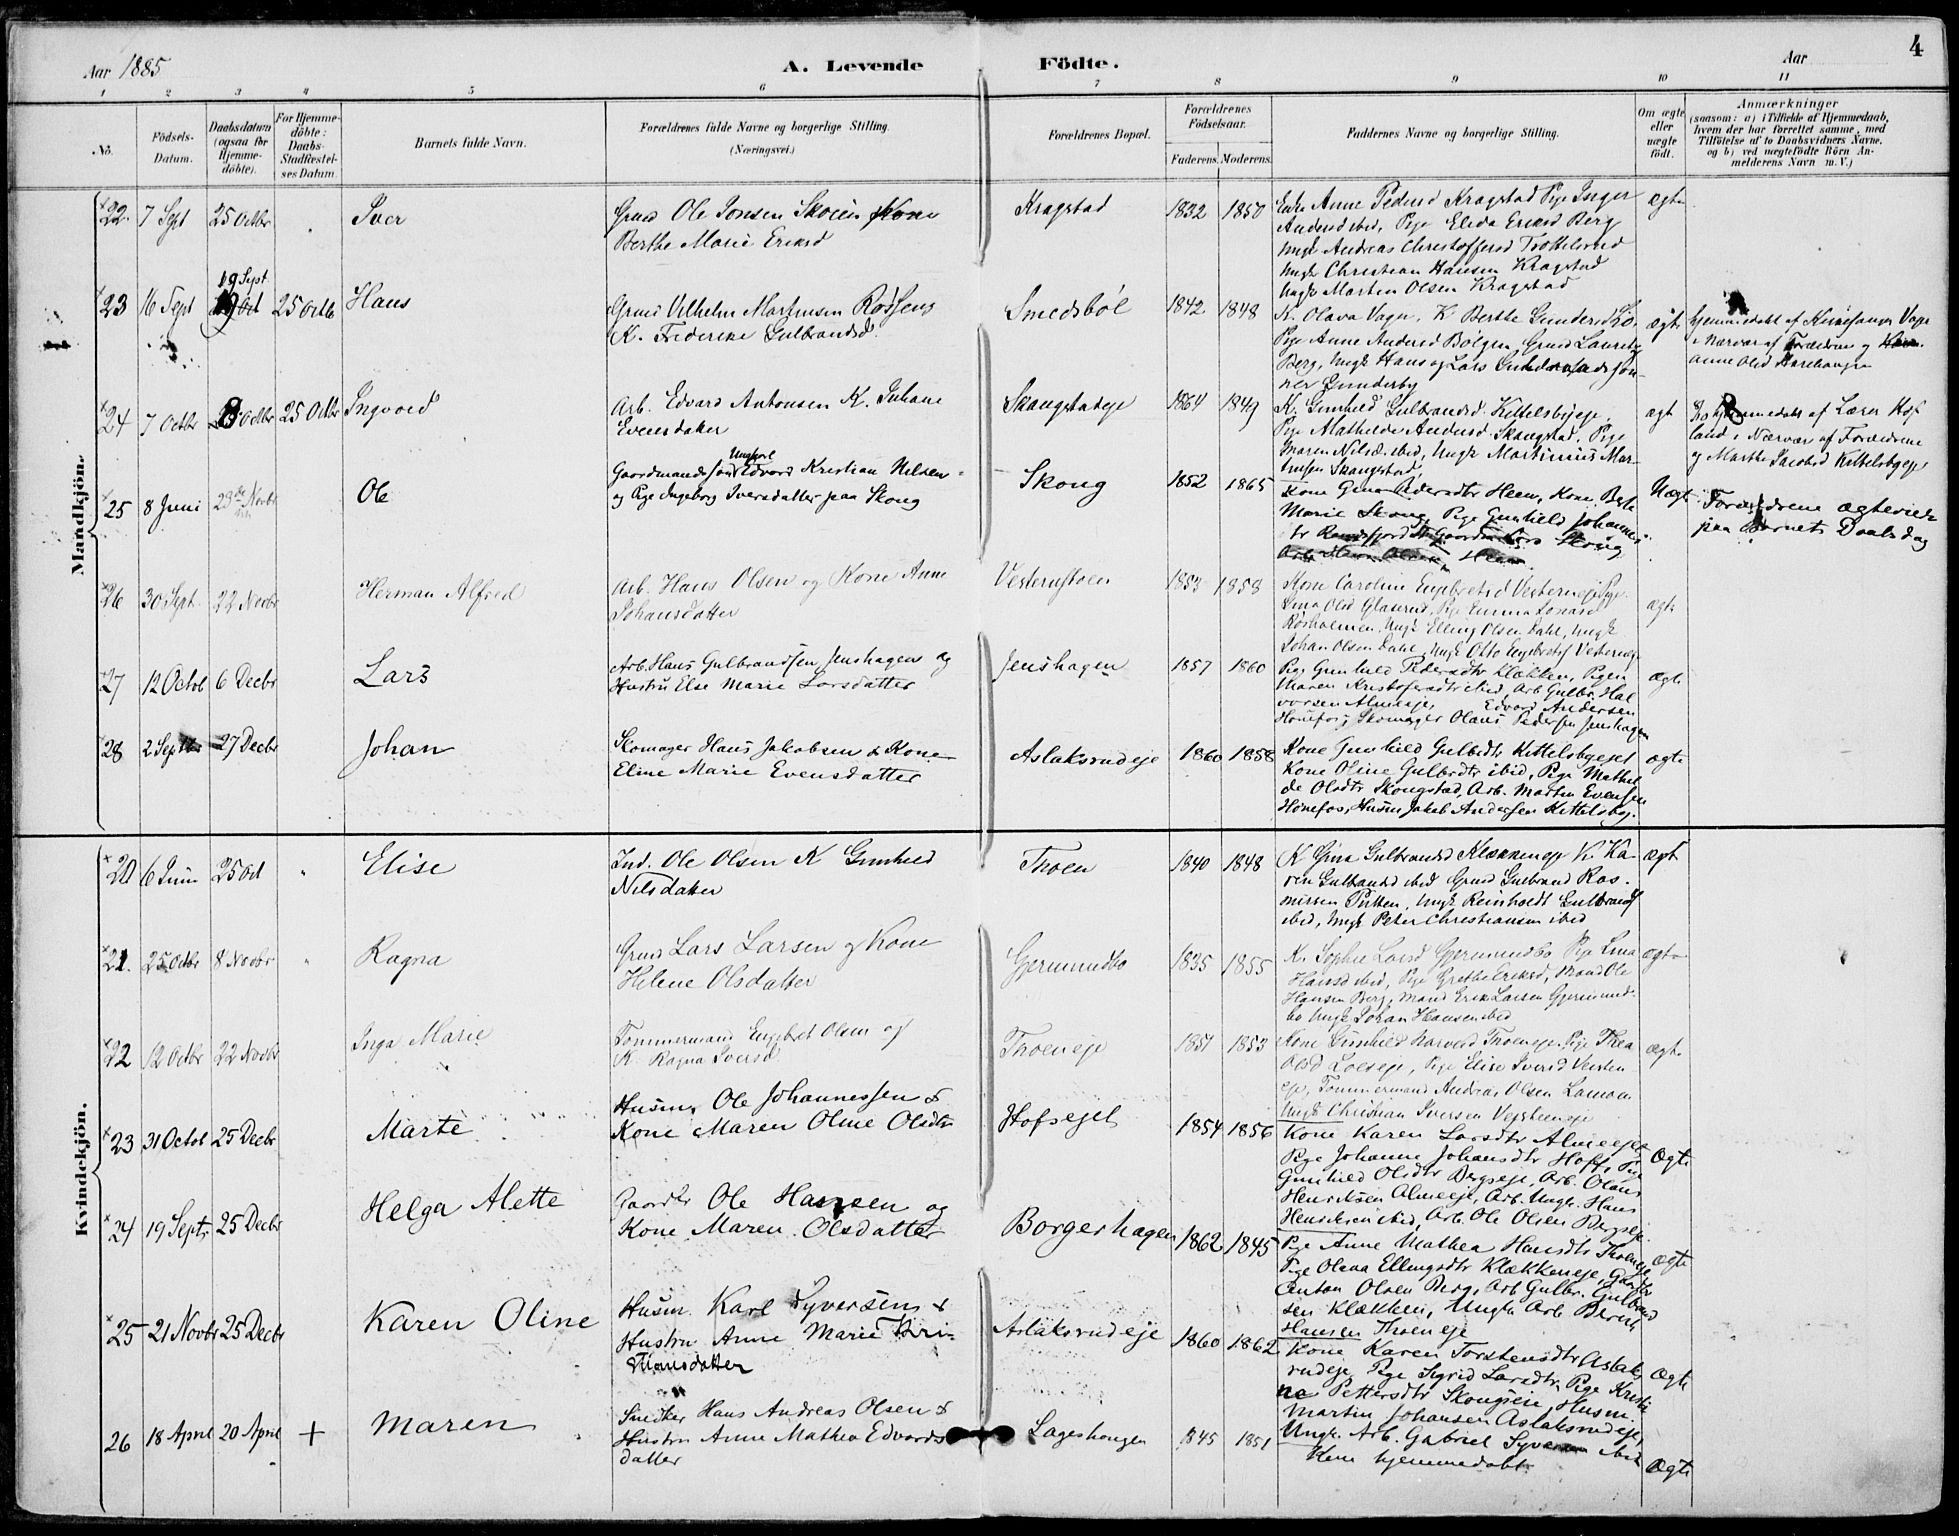 4
Aar 1885
A. Levende Födte.
Aar
1 2 3 4 5 6 7 8 9 10 11
No.
Födsels-Datum.
Daabsdatum (ogsaa for Hjemmedöbte).
For Hjemmedöbte: Daabs-Stadfæstelses Datum.
Barnets fulde Navn.
Forældrenes fulde Navne og borgerlige Stilling.
(Næringsvei.)
Forældrenes Bopæl.
Forældrenes Födselsaar.
Faderens. Moderens.
Faddernes Navne og borgerlige Stilling.
Om ægte eller uægte födt.
Anmærkninger
(saasom: a) i Tilfælde af Hjemmedaab, hvem der har forrettet samme, med Tilföielse af to Daabsvidners Navne, og b) ved uægtefödte Börn Anmelderens Navn m. V.)
Mandkjön.
22. 7 Sept 25 Octbr Iver
Ole Jonsen Skoien Kone
Berthe Marie Eriksd
Kragstad 1832 1850
Enke Anne Pedersd Kragstad Pige Inger
Andersd ibid, Pige Elida Eriksd Berg
Ungk Andreas Christoffersd
Ungk Christian Hansen Kragstad
Ungk Martin Olsen Kragstad
ægte
23 16 Sept 19 Sept 25 Octb Hans
Vilhelm Martinsen
K. Frederike Gulbrandsd.
Smedsböl 1842 1848
K. Olava Vagn, K Berthe Gundersd
Pige Anne Andersd Bölgen
Berg, Ungk Hans og Lars
ægte
24 7 Octbr 8 Octbr 25 Octbr Ingvord
Arb. Edvard Antonsen K. Juhane
Evensdatter
Skaugstadeje 1864 1849
K. Gunhild Gulbrandsd Kittelsbyeje.
Pige Mathilde Andersd Skaugstad. Pige
Maren Nilsd. ibid, Ungk Martinius Mar-
tinsen Skaugstad
ægt
Hjemmedøbt af Lærer Hof
land i Nærvær af Forældrene
og Marthe Jacobsd Kittelsbyeje
25 8 Juni 23de Novbr Ole
Gaardmandssøn Ungkarl Edvard Kristian Nilsen
og Pige Ingeborg Iversdatter paa Skoug
Skoug 1852 1865
Kone Gina Pedersdtr Heen, Kone Berte
Marie Skoug, Pige Gunhild Johannes-
Uægte
Forældrene ægteviede
paa Barnets Daabsdag
26 30 Sept. 22 Novbr Herman Alfred
Arb. Hans Olsen og Kone Anne
Johansdatter
1853 1858
Kone Caroline Engebretsd Vesterneje Pige
Lina Olsd Glaarud, Pige Emma Jonasd
Ungk Elling Olsen Dahl, Ungk
Johan Olsen Dahl, Ungk Otto Engebretsen Vesterneje
ægte
27 12 Octob 6 Decbr Lars
Arb. Hans Gulbrandsen Jenshagen og
Hustru Else Marie Larsdatter
Jenshagen 1857 1860
Pige Gunhild Pedersdtr Klækken, Pigen
Maren Kristofersdtr ibid, Arb. Gulbr. Hal
vorsen Almeeje, Edvard Andersen
Hønefos, Skomager Olaus Pedersen Jenshagen
ægte
28 2 Septbr 27 Decbr Johan
Skomager Hans Jakobsen & Kone
Eline Marie Evensdatter
Aslaksrudeje 1860 1858
Kone Gunhild Gulbdtr Kittelsbyejet
Kone Oline Gulbrdtr ibid, Pige Mathil
de Olsdtr Skougstad, Arb. Martin Evensen
Hønefos, Husm. Jakob Andersen Kittelsby.
ægte
Kvindekjön.
20 6 Juni 25 Oct Elise
Ind. Ole Olsen K Gunhild
Nilsdatter
Thoen 1840 1848
K Gina Gulbrandsd Klækkeneje K. Ka-
ren Gulbrandsd ibid Gulbrand Ras-
mussen Pirken, Ungk Reinholdt Gulbrands
ibid, Ungk Peter Christiansen ibid
ægte
21. 25 Octbr 8 Novbr Ragna
Lars Larsen og Kone
Helene Olsdatter
Gjermundbo 1835 1855
K. Sophie Larsd Gjermundbo Pige Lina
Hansd ibid, Pige Grethe Eriksd, Mand Ole
Hansen Berg, Mand Erik Larsen Gjermund-
bo Ungk Johan Hansen ibid
ægte
22 12 Octbr 22 Novbr Inga Marie
Tømmermand Engebret Olsen og
K. Ragna Iversd
Thoeneje 1851 1853
Kone Gunhild Thoeneje Pige Thea
Olsd Pige Elise Iversd
eje, Tømmermand Andreas Olsen
Ungk Christian Iversen
ægte
23 31 Octob 25 Decbr Marte
Husm. Ole Johannessen &
Kone Maren Oline Olsdtr
Hofsejet 1854 1856
Kone Karen Larsdtr Almeejet
Pige Johanne Johansdtr Hoff, Pige
Gunhild Olsdtr Bergseje, Arb. Olaus
Henriksen Almeeje, Arb. Ungk. Hans
Henriksen ibid, Arb. Ole Olsen Bergseje.
Ægte
24 19 Septr. 25 Decbr Helga Alette
Gaardbr Ole Hansen og
Kone Maren Olsdatter
Borgerhagen 1862 1845
Pige Anne Mathea Hansdtr Thoeneje
Pige Olava Ellingsdtr Klækkeneje, Gaardbr
Anton Olsen Berg, Arb Gulbr. Gulbrand
sen Klækken, Ungk. Arb. Bernt
Hansen Thoeneje
ægte
25 21 Novbr 25 Decbr Karen Oline
Husm. Karl Syversen &
Hustru Anne Marie Kri-
stiansdatter
Aslaksrudeje 1860 1862
Kone Karen Torstensdtr Aslaks
rudeje, Pige Sigrid Larsdtr, Pige Kristi
ne Pettersdtr Skougseie, Husm.
Martin Johansen Aslaksrudeje,
Ungk. Arb. Gabriel Syversen ibid
Ægte
26 18 April 20 April + Maren
Snedker Hans Andreas Olsen &
Hustru Anne Mathea Edvards
datter
Lageshaugen 1845 1851
Kun hjemmedøbt
Ægte